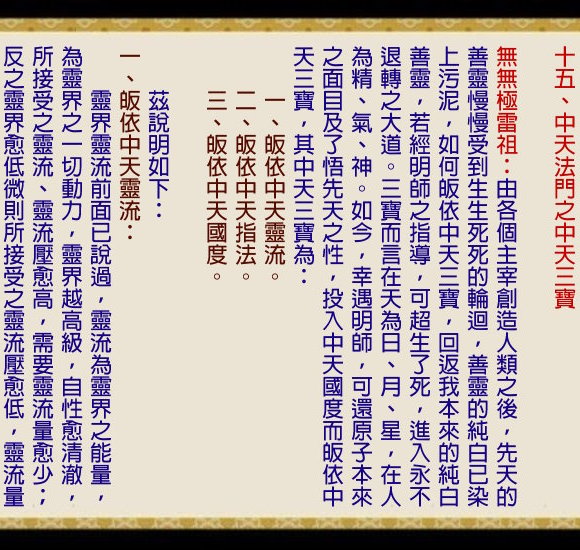 十五、中天法門之中天三寶
無無極雷祖：由各個主宰創造人類之後，先天的
善靈慢慢受到生生死死的輪迴，善靈的純白已染
上污泥，如何皈依中天三寶，回返我本來的純白
善靈，若經明師之指導，可超生了死，進入永不
退轉之大道。三寶而言在天為日、月、星，在人
為精、氣、神。如今，幸遇明師，可還原子本來
之面目及了悟先天之性，投入中天國度而皈依中
天三寶，其中天三寶為：
一、皈依中天靈流。
二、皈依中天指法。
三、皈依中天國度。
茲說明如下：
一、皈依中天靈流：
靈界靈流前面已說過，靈流為靈界之能量，
為靈界之一切動力，靈界越高級，自性愈清澈，
所接受之靈流、靈流壓愈高，需要靈流量愈少；
反之靈界愈低微則所接受之靈流壓愈低，靈流量